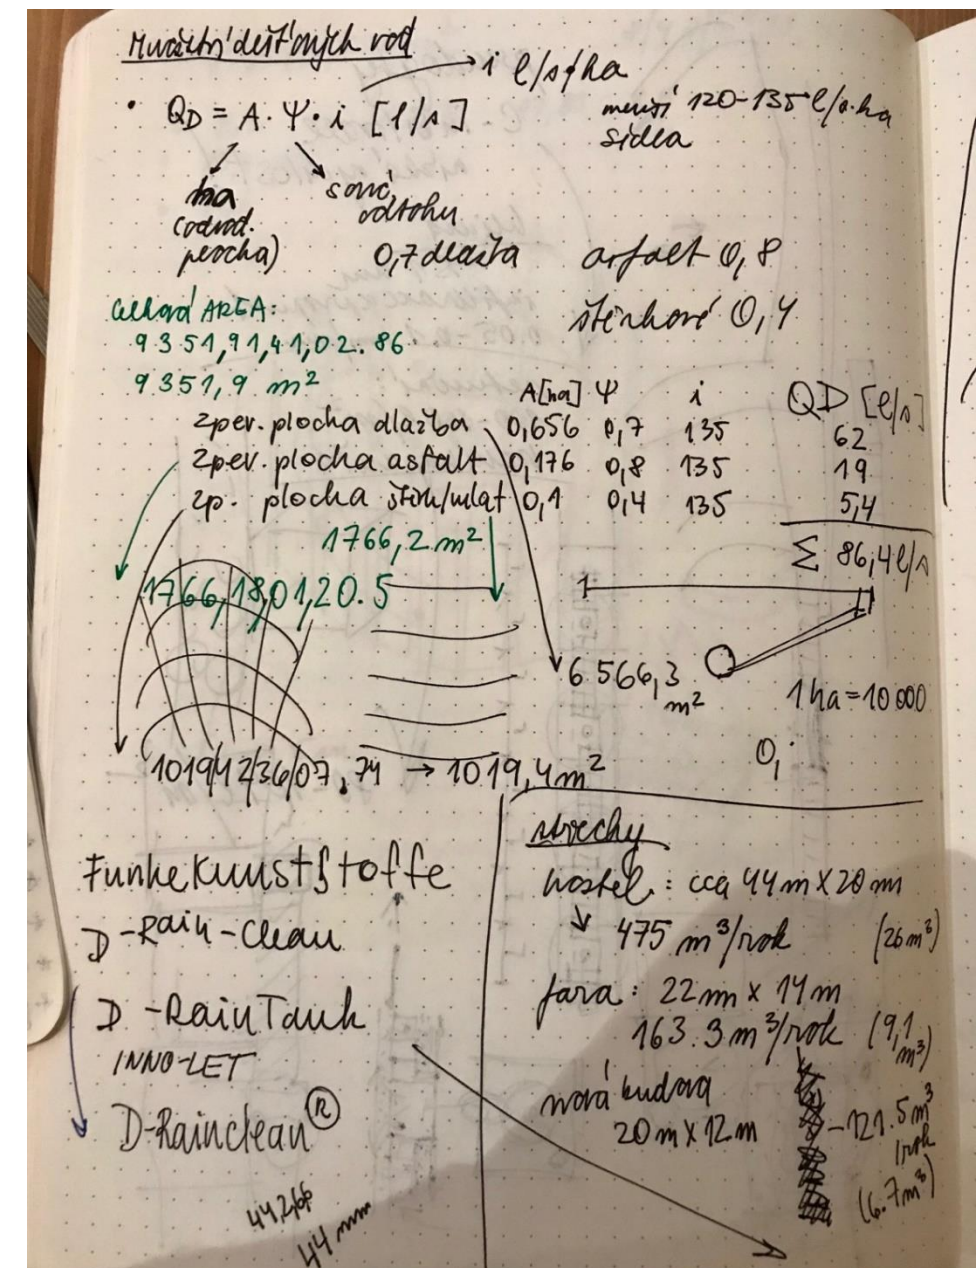 dešťových vod
i l/s/ha
• QD = A · Ψ · i [l/s]
menší 120-135 l/s·ha
sídla
ha
(odvod.
plocha)
souč.
odtoku
0,7 dlažba
asfalt 0,8
štěrkové 0,4
Celková AREA:
9351,91,41,02.86
9351,9 m²
A[ha] Ψ i QD [l/s]
zpev. plocha dlažba 0,656 0,7 135 62
zpev. plocha asfalt 0,176 0,8 135 19
zp. plocha štěrk/mlat 0,1 0,4 135 5,4
Σ 86,4 l/s
1766,2 m²
1766,18,01,20.5
6 566,3
m²
1 ha = 10 000
0,
1019/42/36/07,74 → 1019,4 m²
Funke Kunststoffe
D-Rain-Clean
D-RainTank
INNO-LET
D-Rainclean®
44,266
44 mm
střechy
hostel: cca 44m X 20m
475 m³/rok (26 m³)
fara: 22m x 14m
163.3 m³/rok (9,1
m³)
nová budova
20m X 12m
-121.5m³
/rok
(6.7m³)